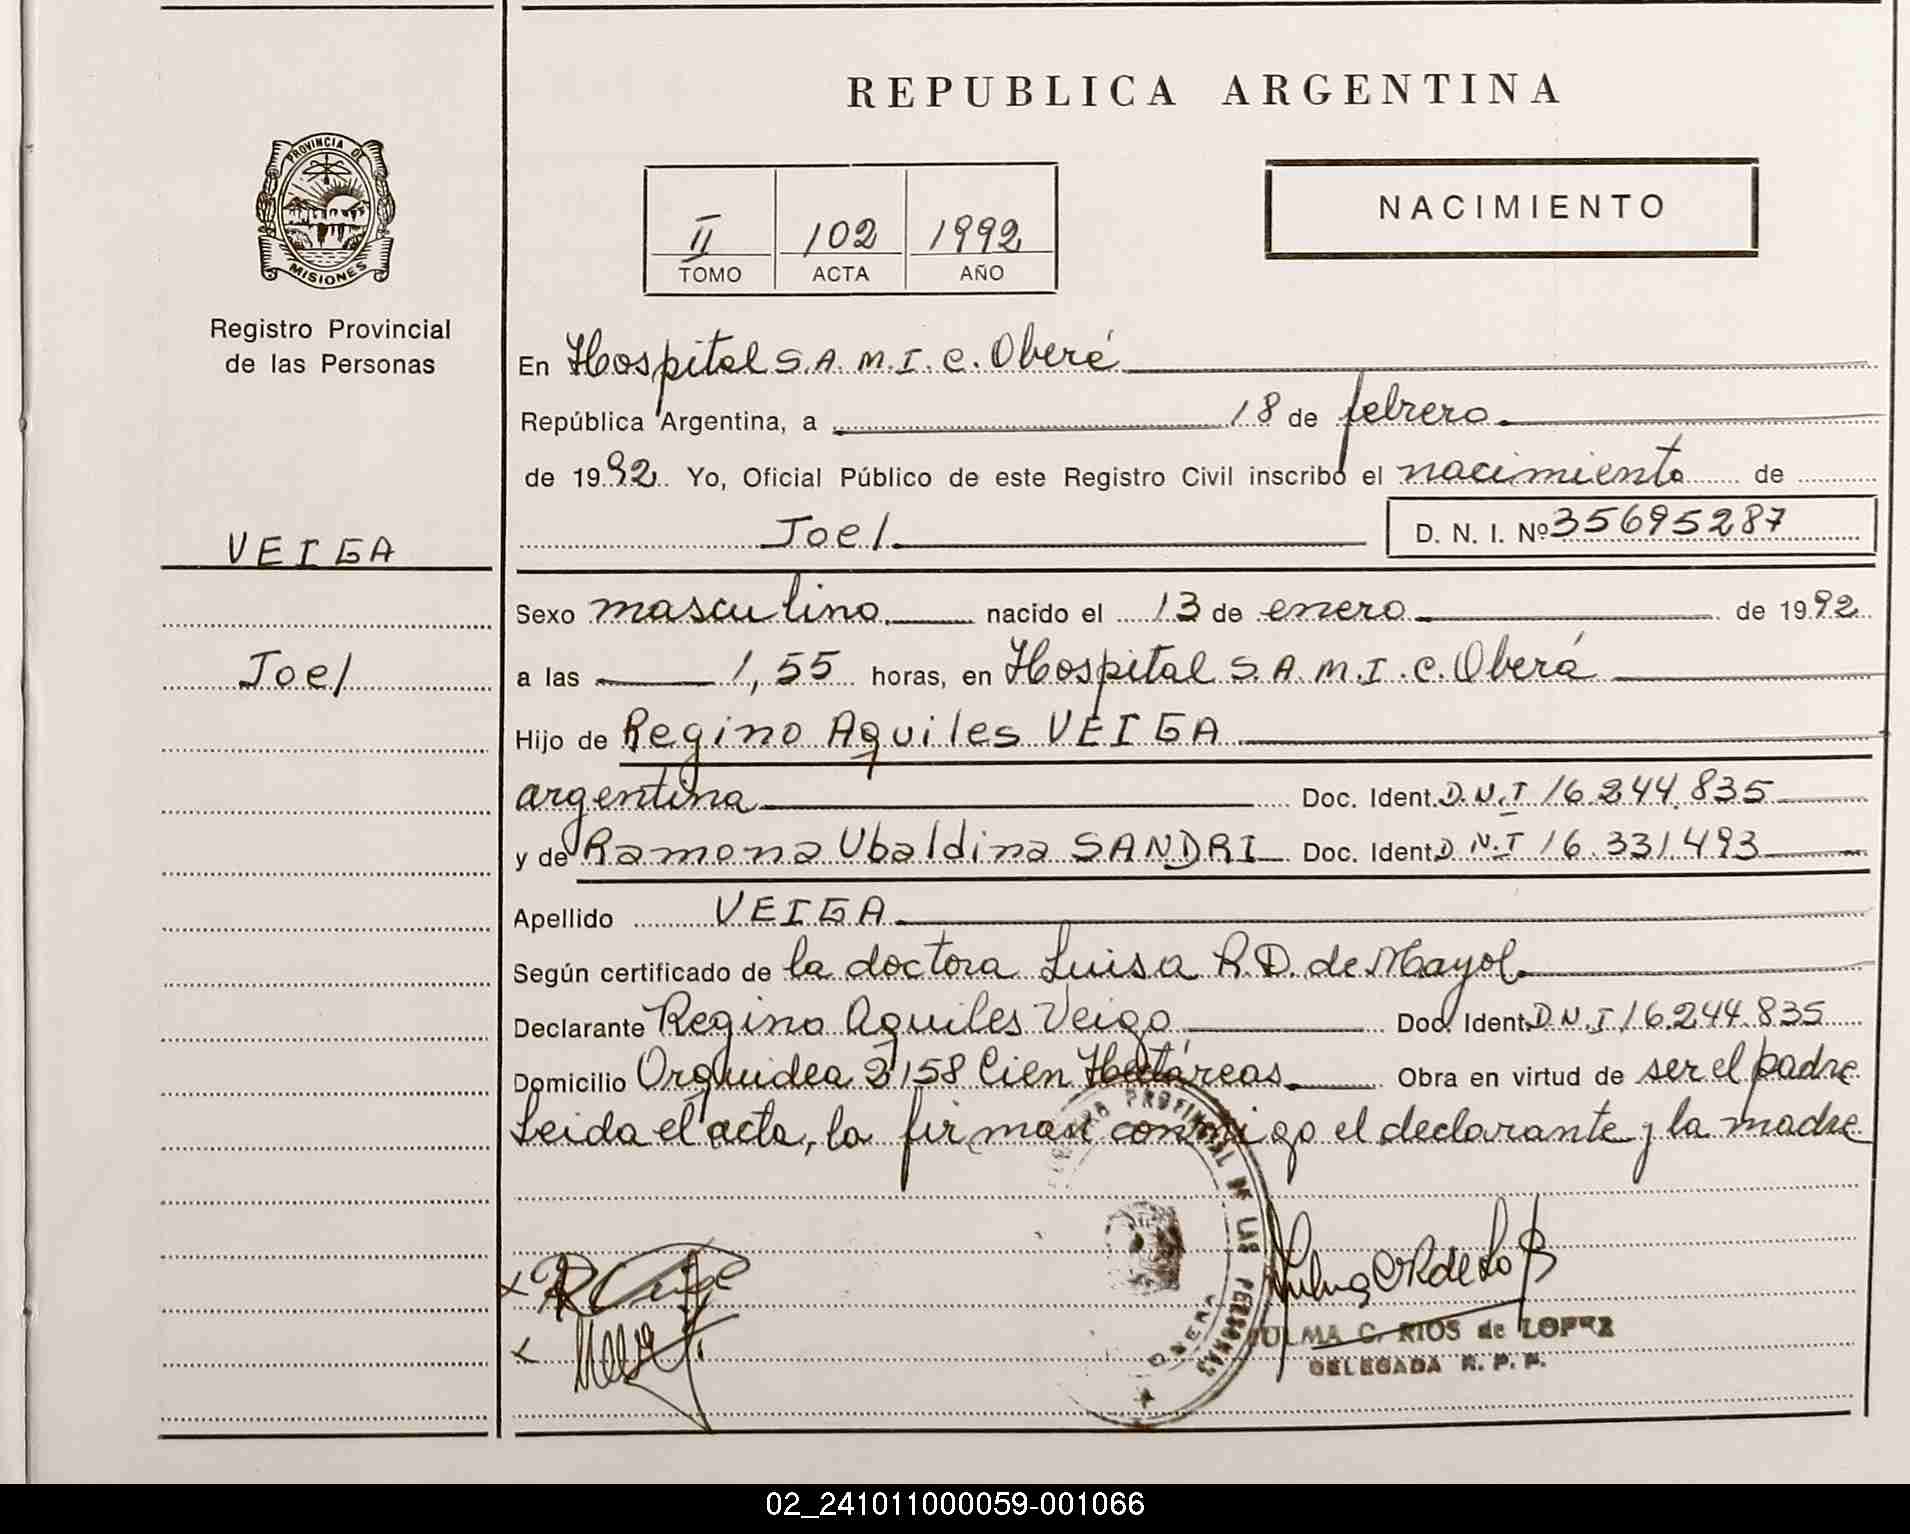 REPUBLICA ARGENTINA
PROVINCIA DE
MISIONES
Registro Provincial
de las Personas
II 102 1992
TOMO ACTA AÑO
NACIMIENTO
En Hospital S.A.M.I.C. Oberá
República Argentina, a 18 de febrero
de 1992. Yo, Oficial Público de este Registro Civil inscribo el nacimiento de
Joel D. N. I. Nº 35695287
VEIGA
Joel
Sexo masculino nacido el 13 de enero de 1992
a las 1,55 horas, en Hospital S.A.M.I.C. Oberá
Hijo de Regino Aquiles VEIGA
argentina Doc. Ident. D.N.I 16.244.835
y de Ramona Ubaldina SANDRI Doc. Ident. D.N.I 16.331.493
Apellido VEIGA
Según certificado de la doctora Luisa R.D. de Mayol
Declarante Regino Aquiles Veiga Doc. Ident. D.N.I 16.244.835
Domicilio Orquidea 2158 Cien Hectáreas Obra en virtud de ser el padre
Leida el acta, la firman conmigo el declarante y la madre
PROVINCIAL DE LAS PERSONAS
OBERA
C. RIOS de LOPEZ
DELEGADA R. P. P.
02_241011000059-001066